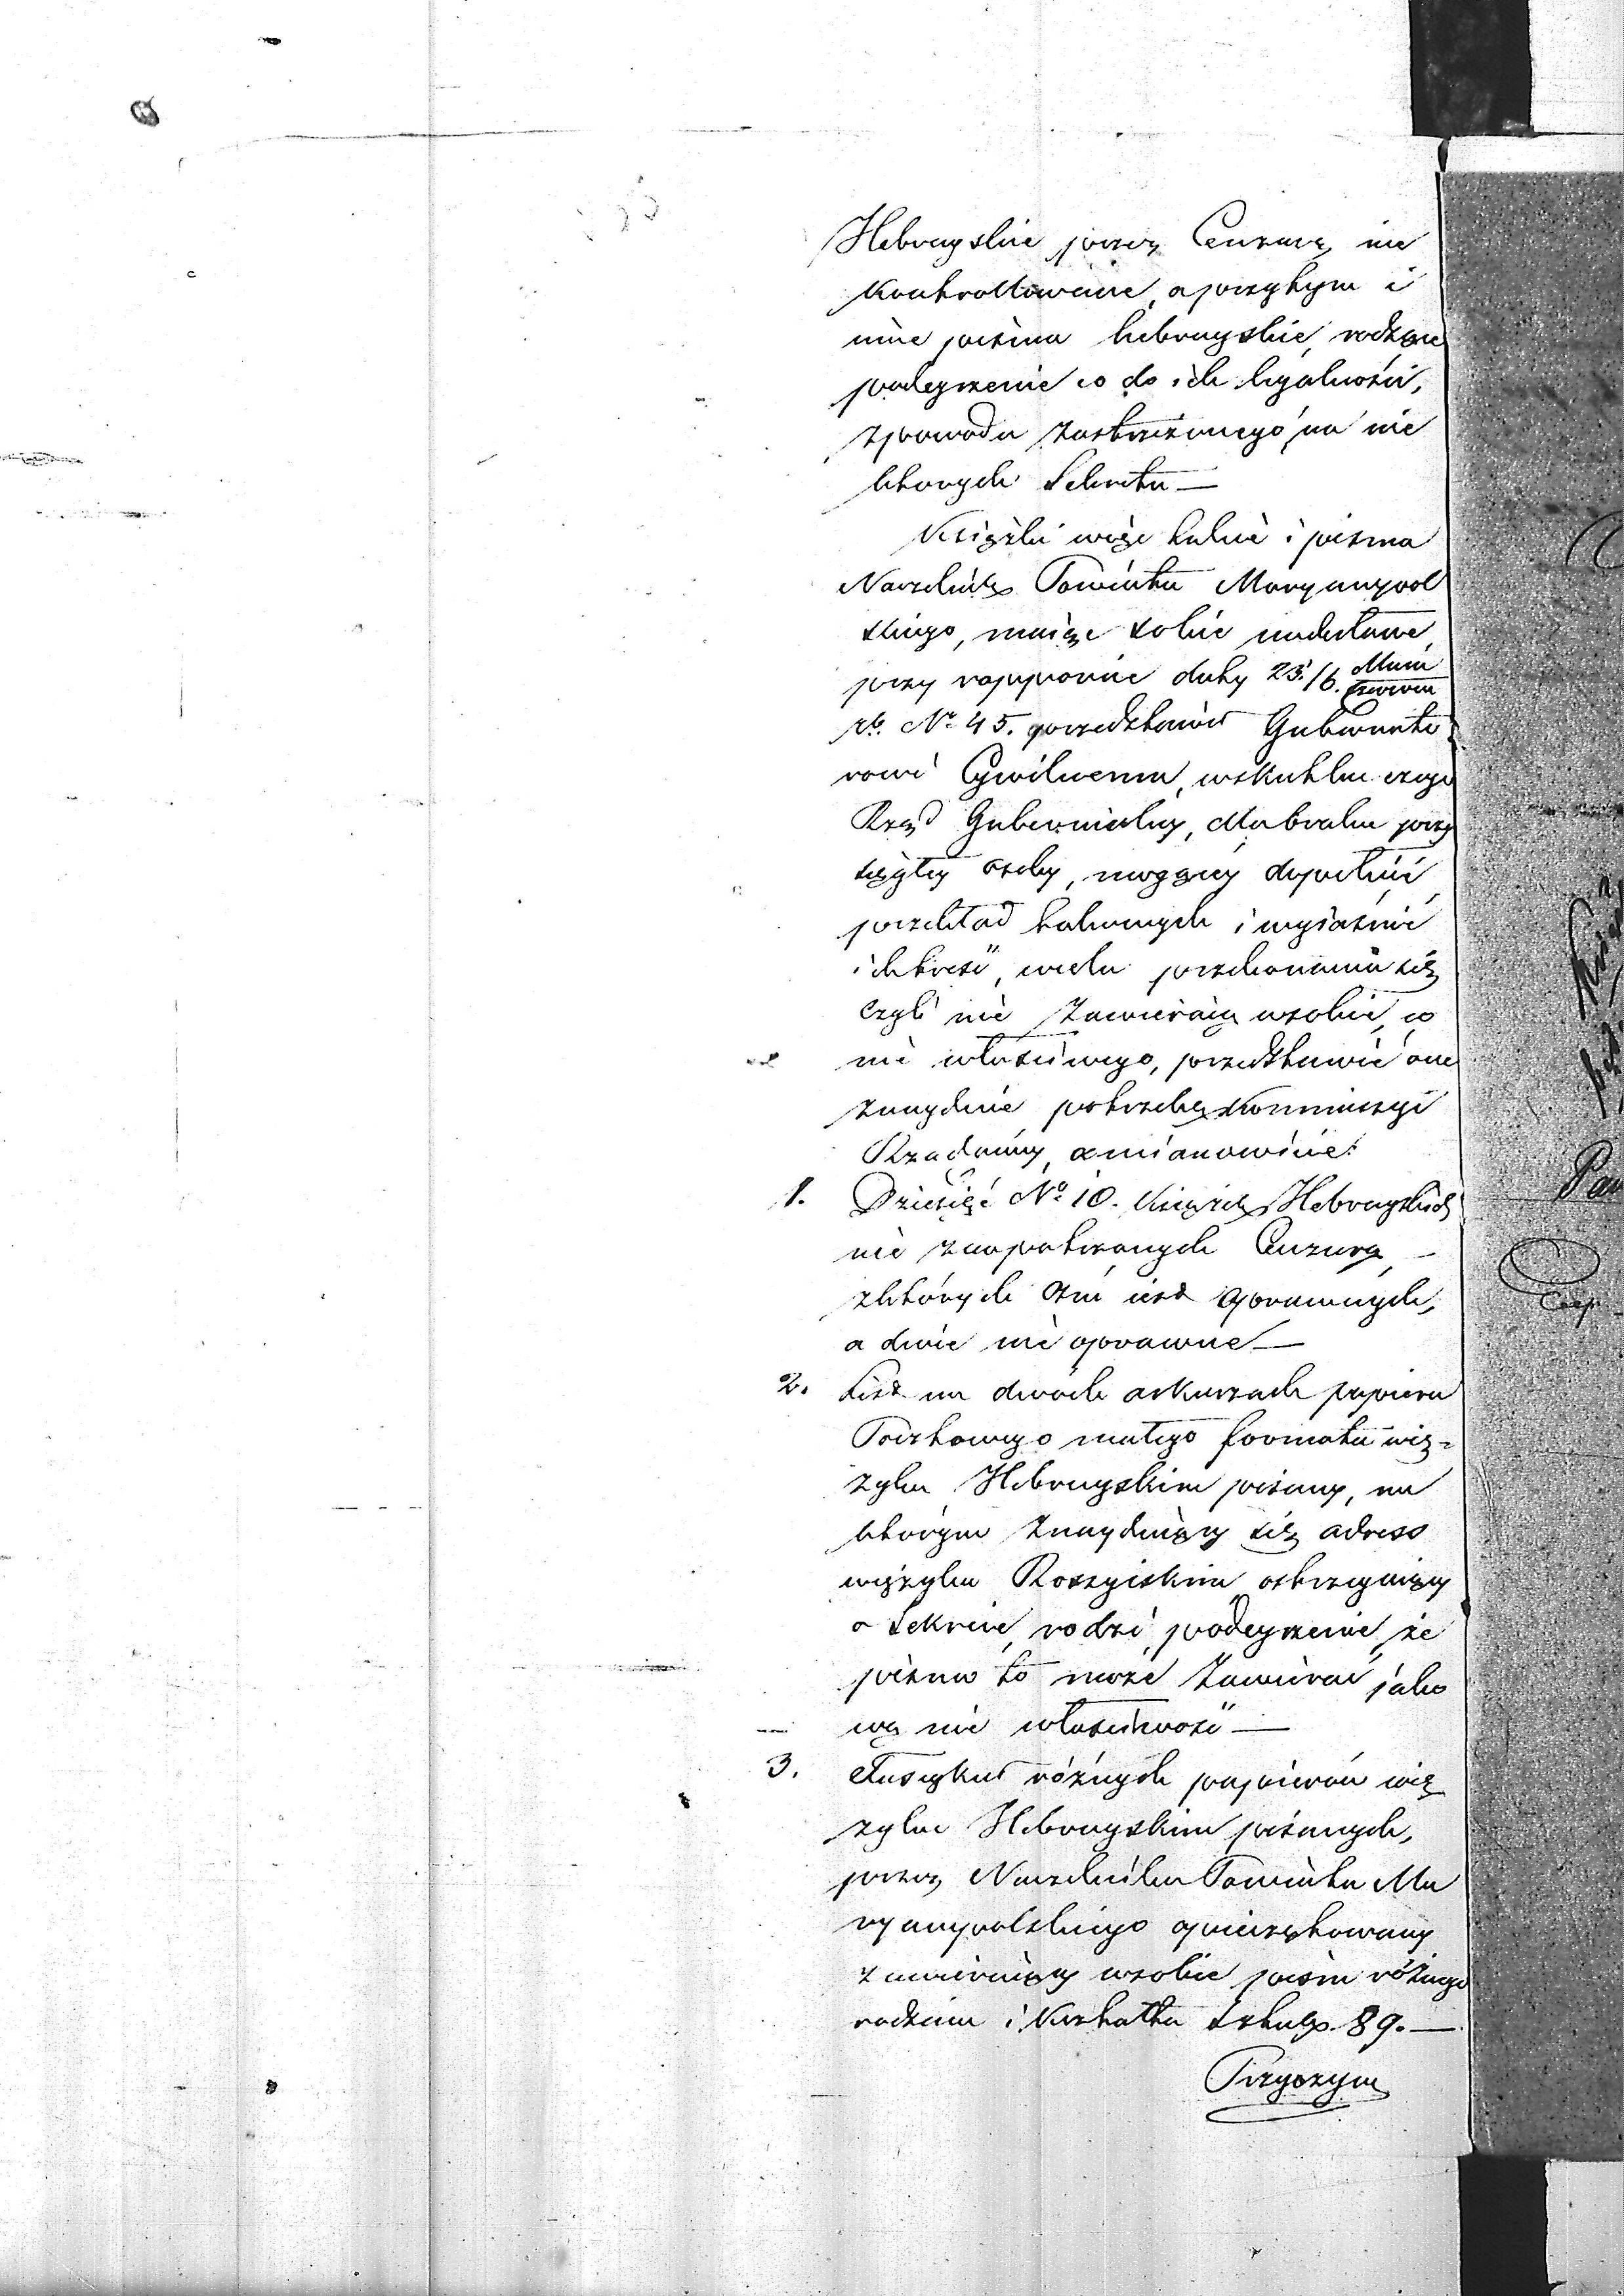 Hebrayskie przez Cenzurę nie
kontrollowane, a przytym i
inne pisma hebrayskie, rodzące
podeyrzenie co do ich legalności,
zpowodu zastrzeżonego na nie
których Sekretu —
Książki więc takie i pisma
Naczelnik Powiatu Maryampol
skiego, maiąc sobie nadesłane,
przy rapporcie daty 25/6. Maia
Czerwca
rb. No 45. przedstawił Guberna­to
rowi Cywilnemu, wskutku czego
Rząd Gubernialny, dla braku przy
sięgłey osoby, mogącey dopełnić
przekład takowych i wyiaśnić
ich treść, wcelu przekonania się
czyli nie zawieraią wsobie, co
nie właściwego, przedstawić one
znayduie potrzebę Kommissyi
Rządowey, a mianowicie:
1. Dziesięć No 10. Książek Hebrayskich
nie zaopatrzonych Cenzurą, —
zktórych ośm iest oprawnych,
a dwie nie oprawne —
2. List na dwóch arkuszach papieru
Pocztowego małego formatu wię-
zyku Hebrayskim pisany, na
którym znayduiący się adress
więzyku Rossyiskim ostrzegaiący
o Sekrecie, rodzi podeyrzenie, że
pismo to może zawierać jako
wą nie właściwość —
3. Fascykuł różnych papierów wię
zyku Hebrayskim pisanych,
przez Naczelnika Powiatu Ma
ryampolskiego opieczętowany
zawieraiący wsobie pism różnego
rodzaiu i Kształtu Sztuk. 89. —
Przyczym